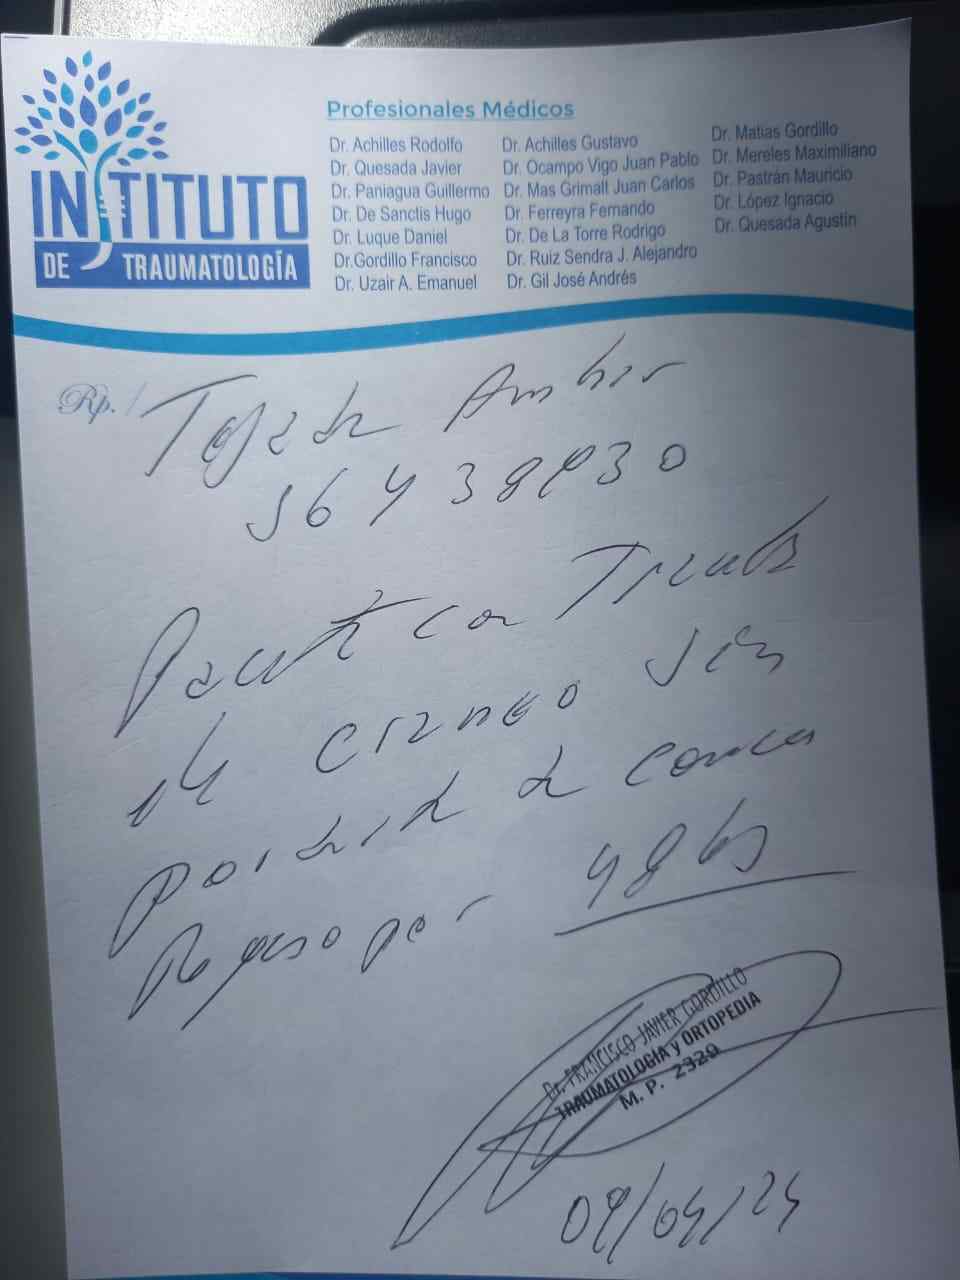 INSTITUTO
DE TRAUMATOLOGÍA
Profesionales Médicos
Dr. Achilles Rodolfo
Dr. Quesada Javier
Dr. Paniagua Guillermo
Dr. De Sanctis Hugo
Dr. Luque Daniel
Dr.Gordillo Francisco
Dr. Uzair A. Emanuel
Dr. Achilles Gustavo
Dr. Ocampo Vigo Juan Pablo
Dr. Mas Grimalt Juan Carlos
Dr. Ferreyra Fernando
Dr. De La Torre Rodrigo
Dr. Ruiz Sendra J. Alejandro
Dr. Gil José Andrés
Dr. Matias Gordillo
Dr. Mereles Maximiliano
Dr. Pastrán Mauricio
Dr. López Ignacio
Dr. Quesada Agustin
Rp./ Tejada
Paciente con Trauma
de craneo sin
perdida de conciencia
Reposo por 48 hs
Dr. FRANCISCO JAVIER GORDILLO
TRAUMATOLOGÍA y ORTOPEDIA
M. P. 2329
09/04/24